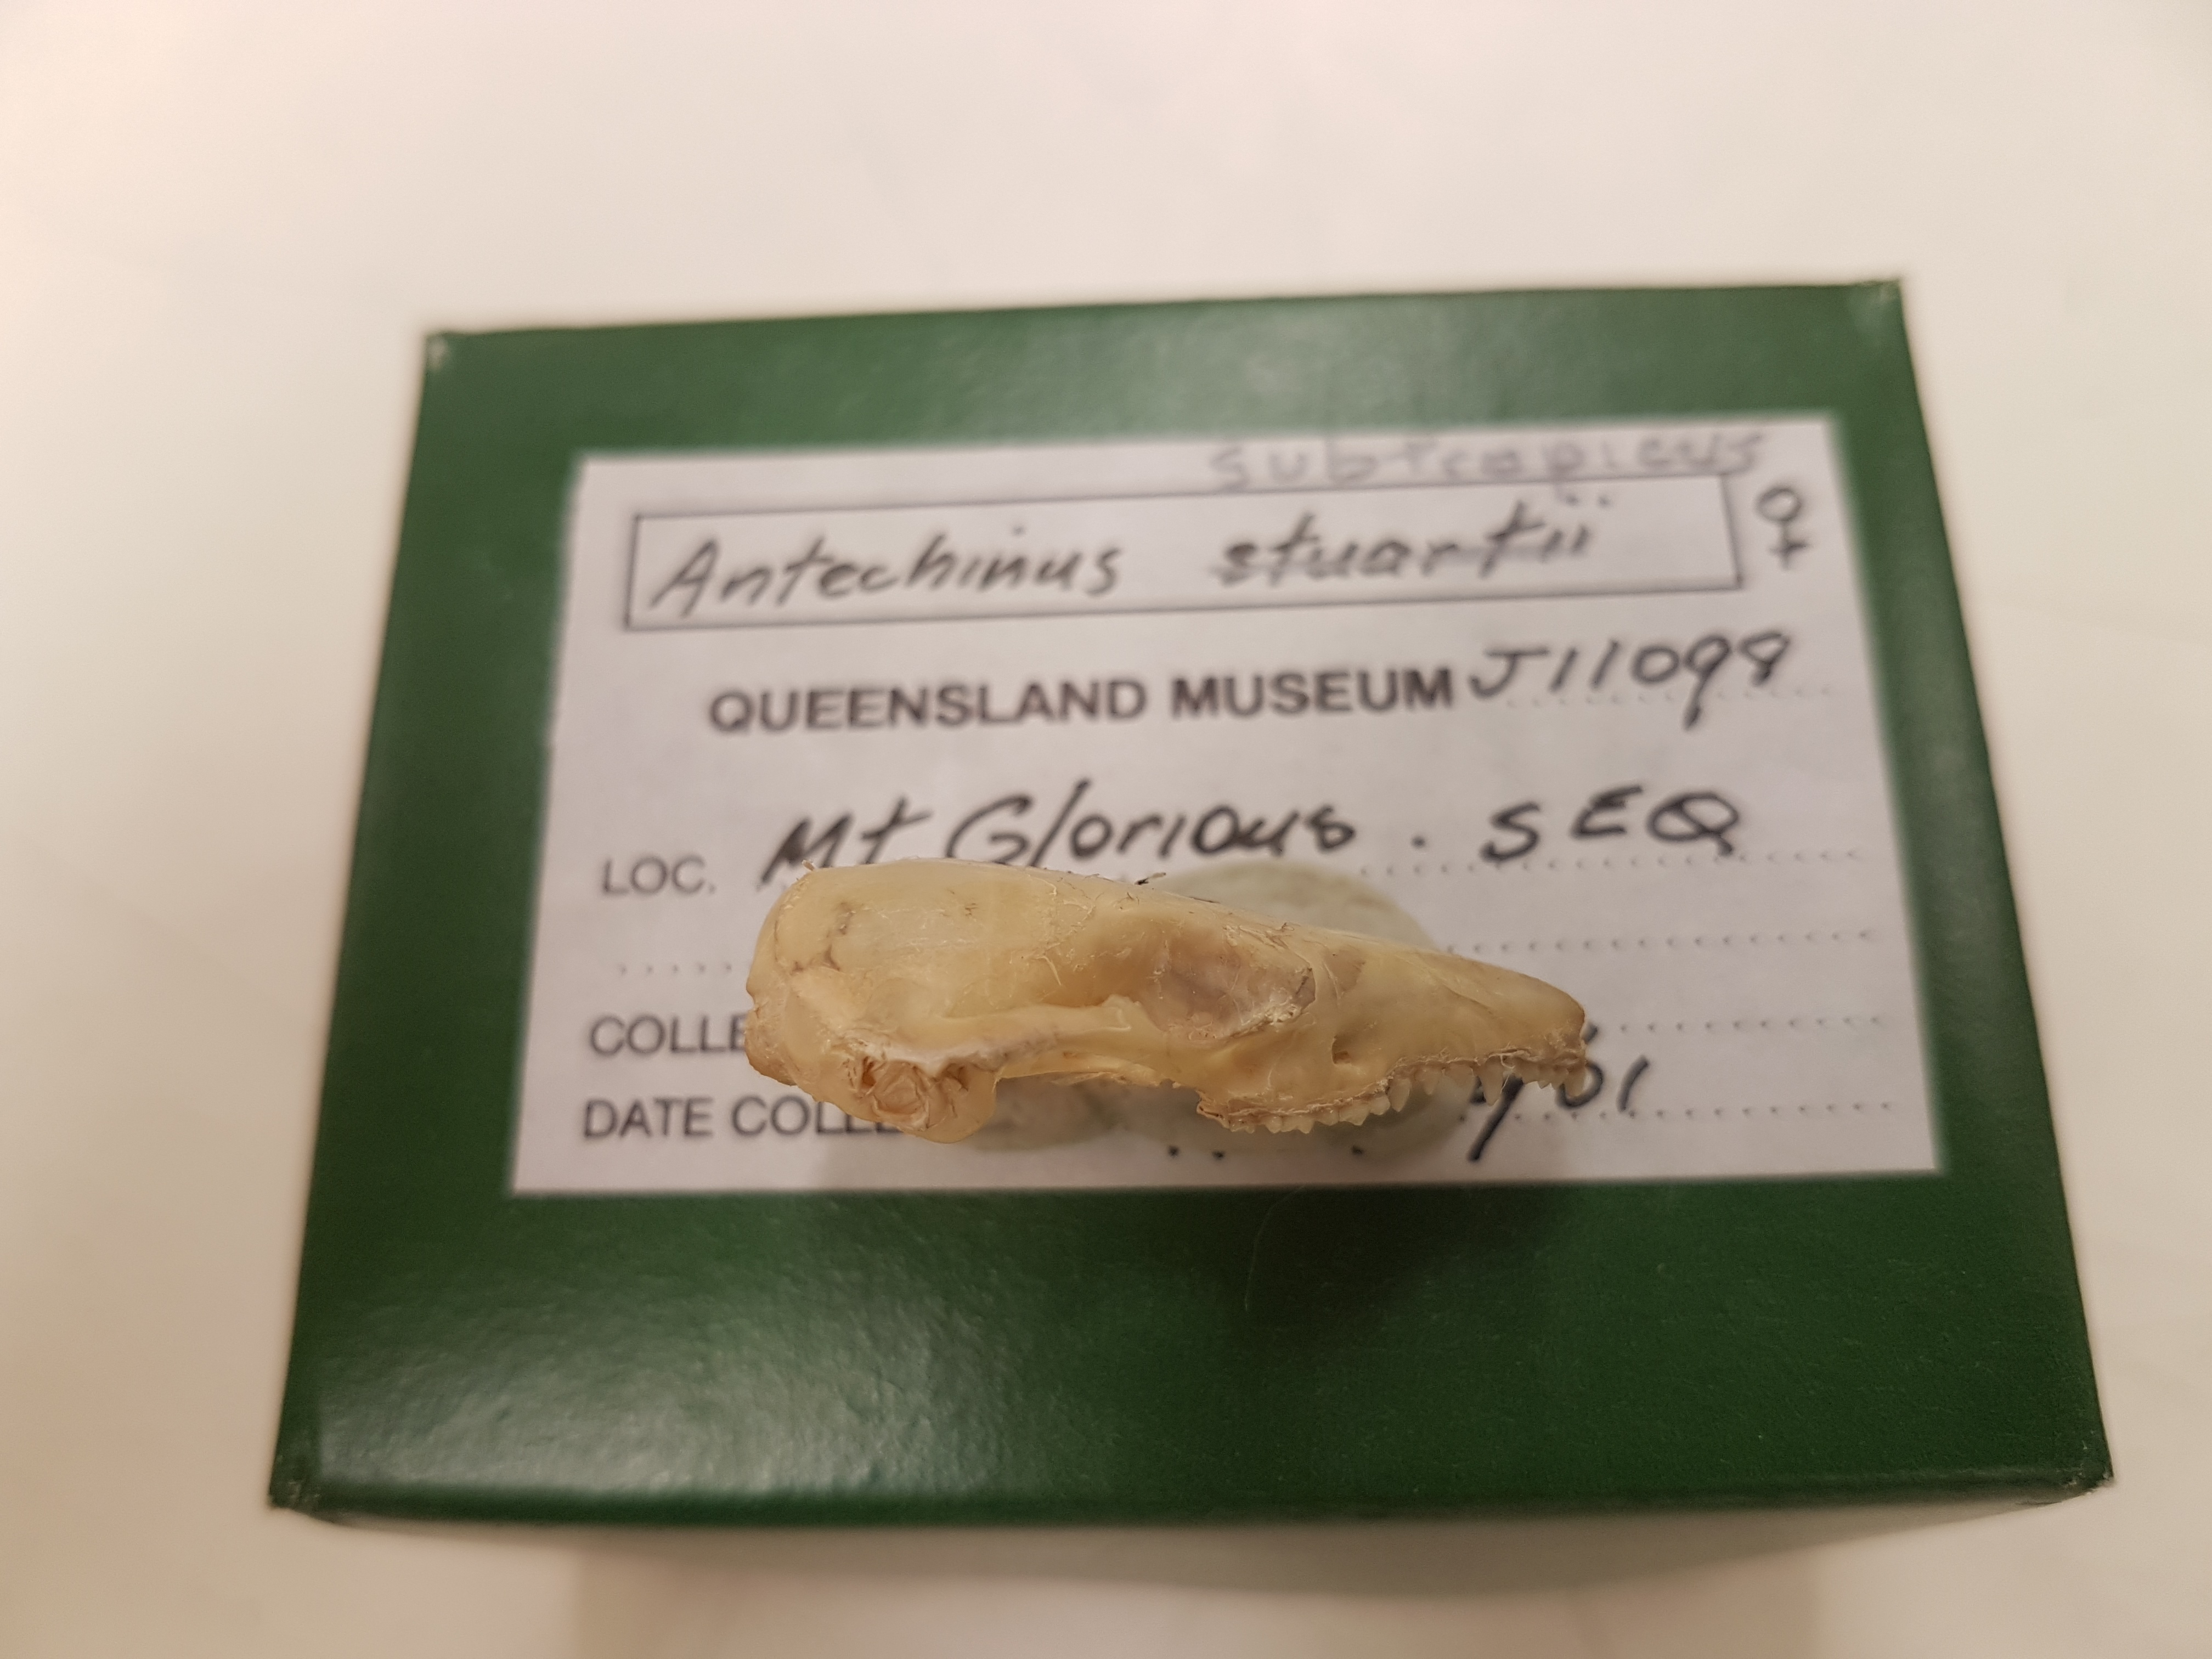 subtropicus
Antechinus stuartii ♀
QUEENSLAND MUSEUM J11098
LOC. Mt Glorious. SEQ
COLLE
DATE COLLE